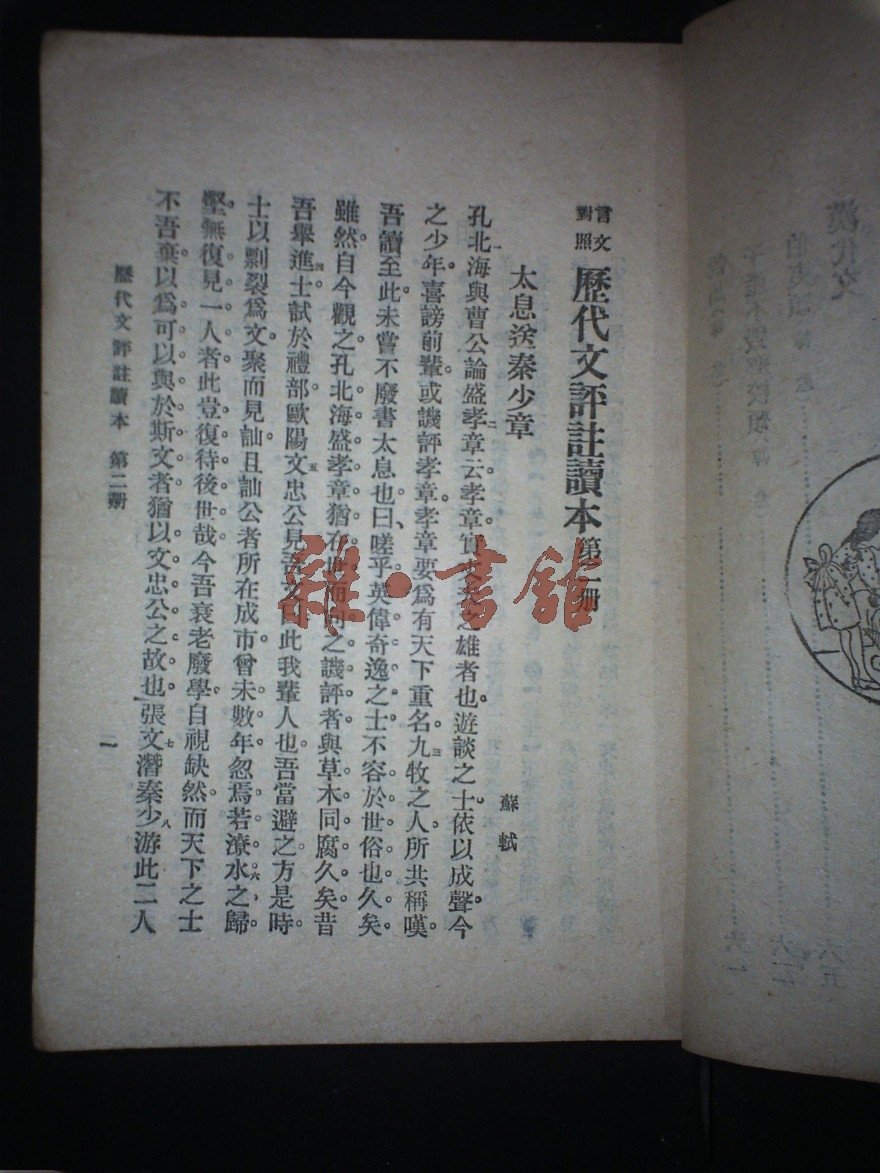 言文對照 歷代文評註讀本 第二册
太息送秦少章
蘇軾
孔北海與曹公論盛孝章云孝章實丈夫之雄者也遊談之士依以成聲今
之少年喜謗前輩或譏評孝章孝章要爲有天下重名九牧之人所共稱嘆
吾讀至此未嘗不廢書太息也曰嗟乎英偉奇逸之士不容於世俗也久矣
雖然自今觀之孔北海盛孝章猶在世而向之譏評者與草木同腐久矣昔
吾舉進士試於禮部歐陽文忠公見吾文曰此我輩人也吾當避之方是時
士以剽裂爲文聚而見訕且訕公者所在成市曾未數年忽焉若潦水之歸
壑無復見一人者此豈復待後世哉今吾衰老廢學自視缺然而天下之士
不吾棄以爲可以與於斯文者猶以文忠公之故也張文潛秦少游此二人
歷代文評註讀本 第二册
一
雜·書館
漢代文
伯夷頌
子產不毀鄉校頌
六五
六二
六一